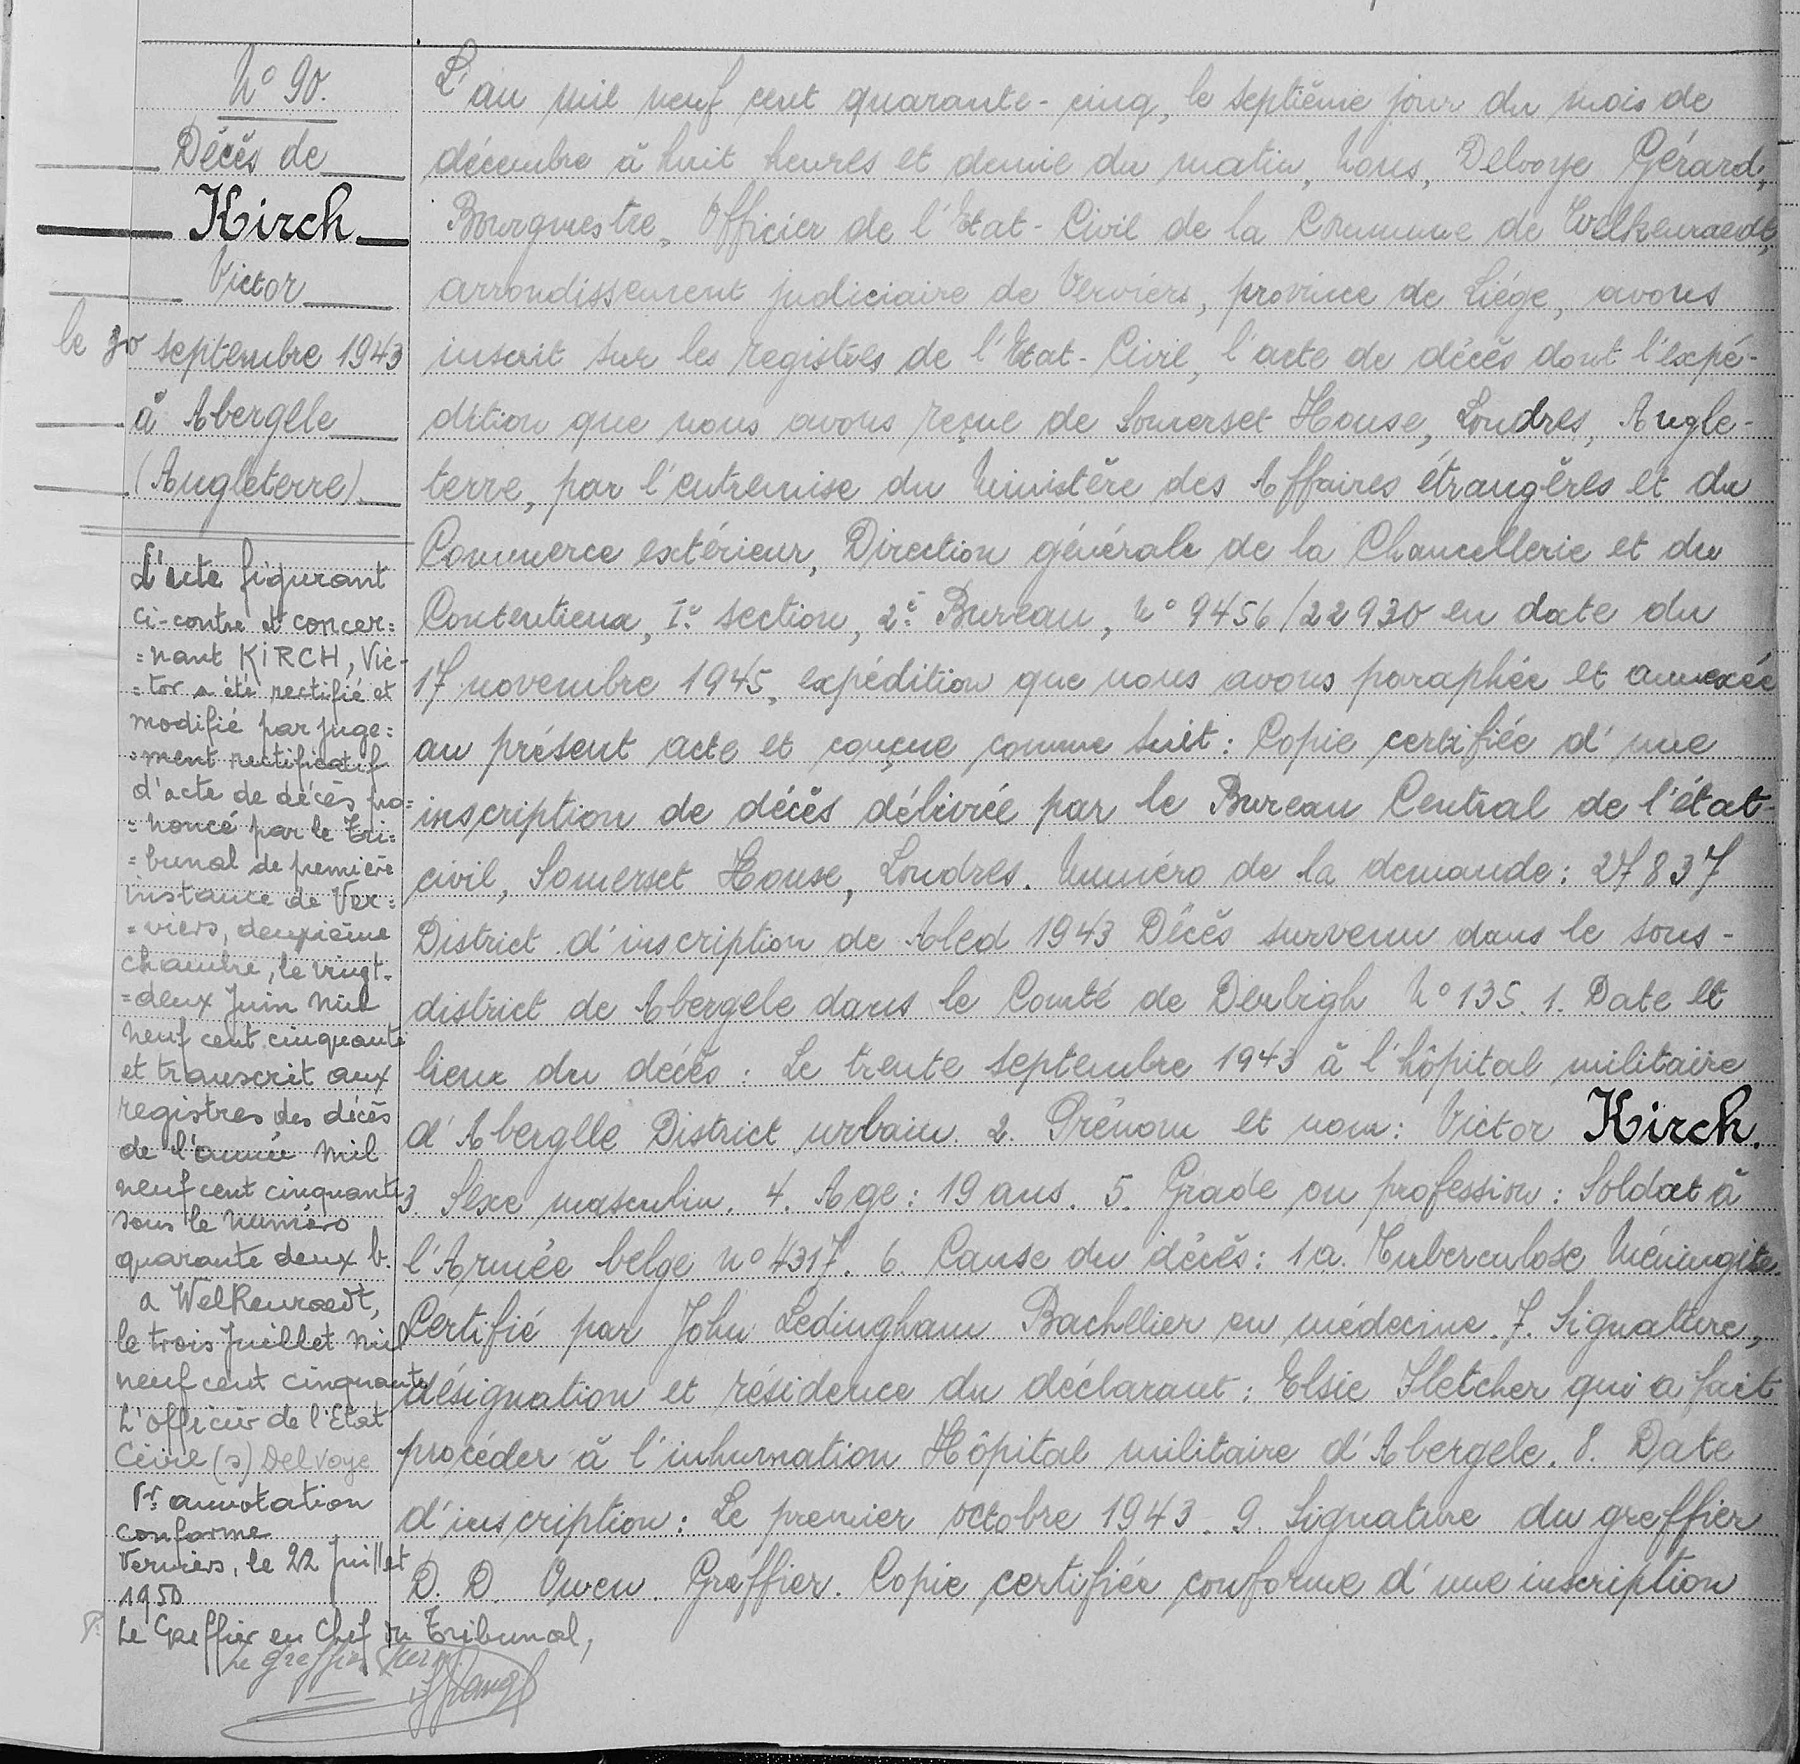 N° 90.
Décès de
Kirch
Victor
le 30 septembre 1943
à Abergele
(Angleterre)
L'acte figurant
ci-contre et concer=
=nant KIRCH, Vic-
=tor a été rectifié et
modifié par juge=
=ment rectificatif
d'acte de décès pro=
=noncé par le Tri=
=bunal de première
instance de Ver=
=viers, deuxième
chambre, le vingt-
=deux Juin mil
neuf cent cinquante
et transcrit aux
registres des décès
de l'année mil
neuf cent cinquante
sous le numéro
quarante deux b.
a Welkenraedt,
le trois Juillet mil
neuf cent cinquante
L'officier de l'Etat
Civil (s) Delvoye
Pr annotation
conforme
Verviers, le 22 Juillet
1950
Le Greffier en Chef du Tribunal,
Le greffier
L'an mil neuf cent quarante-cinq, le septième jour du mois de
décembre à huit heures et demie du matin, Nous, Delvoye Gérard,
Bourgmestre, Officier de l'Etat-Civil de la Commune de Welkenraedt,
arrondissement judiciaire de Verviers, province de Liége, avons
inscrit sur les registres de l'Etat-Civil, l'acte de décès dont l'expé-
dition que nous avons reçue de Somerset House, Londres, Angle-
terre, par l'entremise du Ministère des Affaires étrangères et du
Commerce extérieur, Direction générale de la Chancellerie et du
Contentieux, Ie section, 2e Bureau, N° 9456/22930 en date du
17 novembre 1945, expédition que nous avons paraphée et annexée
au présent acte et conçue comme suit: Copie certifiée d'une
inscription de décès délivrée par le Bureau Central de l'état-
civil, Somerset House, Londres. Numéro de la demande: 27837
District d'inscription de Aled 1943 Décès survenu dans le sous-
district de Abergele dans le Comté de Denbigh N° 135. 1. Date et
lieu du décès: Le trente septembre 1943 à l'hôpital militaire
d'Abergele District urbain. 2. Prénom et nom: Victor Kirch.
3. Sexe masculin. 4. Age: 19 ans. 5. Grade ou profession: Soldat à
l'Armée belge N° 4317. 6. Cause du décès: 1a. Tuberculose Méningite.
Certifié par John Ledingham Bachelier en médecine. 7. Signature,
désignation et résidence du déclarant: Elsie Fletcher qui a fait
procéder à l'inhumation Hôpital militaire d'Abergele. 8. Date
d'inscription: Le premier octobre 1943. 9. Signature du greffier
D. D. Owen. Greffier. Copie certifiée conforme d'une inscription